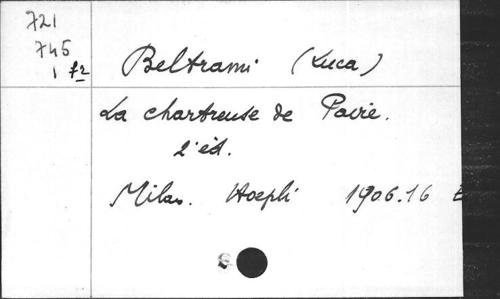 721
745
1 f2
Beltrami (Luca)
La chartreuse de Pavie.
2e éd.
Milan. Hoepli 1906.16